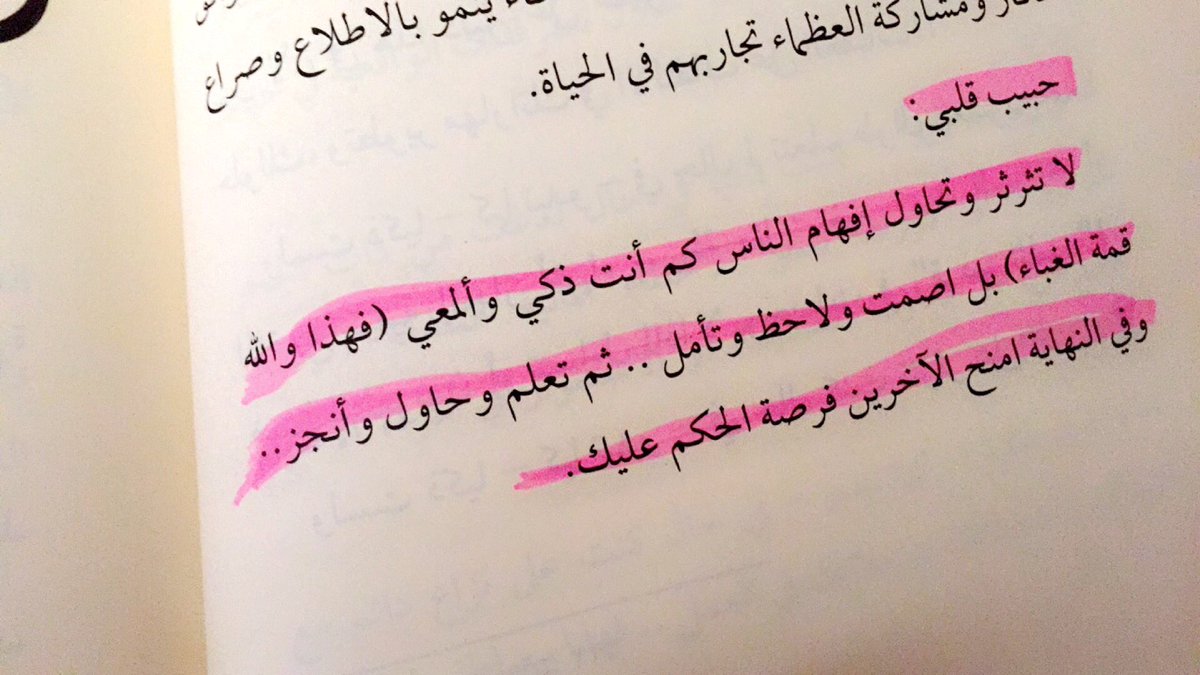 ينمو بالاطلاع وصراع
ومشاركة العظماء تجاربهم في الحياة.
حبيب قلبي:
لا تثرثر وتحاول إفهام الناس كم أنت ذكي وألمعي (فهذا والله
قمة الغباء) بل اصمت ولاحظ وتأمل .. ثم تعلم وحاول وأنجز..
وفي النهاية امنح الآخرين فرصة الحكم عليك.